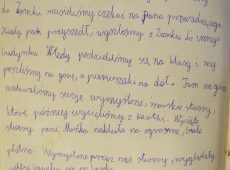 do Zamku musieliśmy czekać na Pana prowadzącego
kiedy pan przyszedł, wyszliśmy z Zamku do innego
budynku. Wtedy podzieliliśmy się na klasy i my
poszliśmy na górę, a pierwszaki na dół. Tam na górze
malowaliśmy swoje wymyślone, morskie stwory;
które później wycięliśmy z kartki. Wycięte
stwory pani Monika nakleiła na ogromne, białe
płótno. Wymyślone przez nas stwory, wyglądały